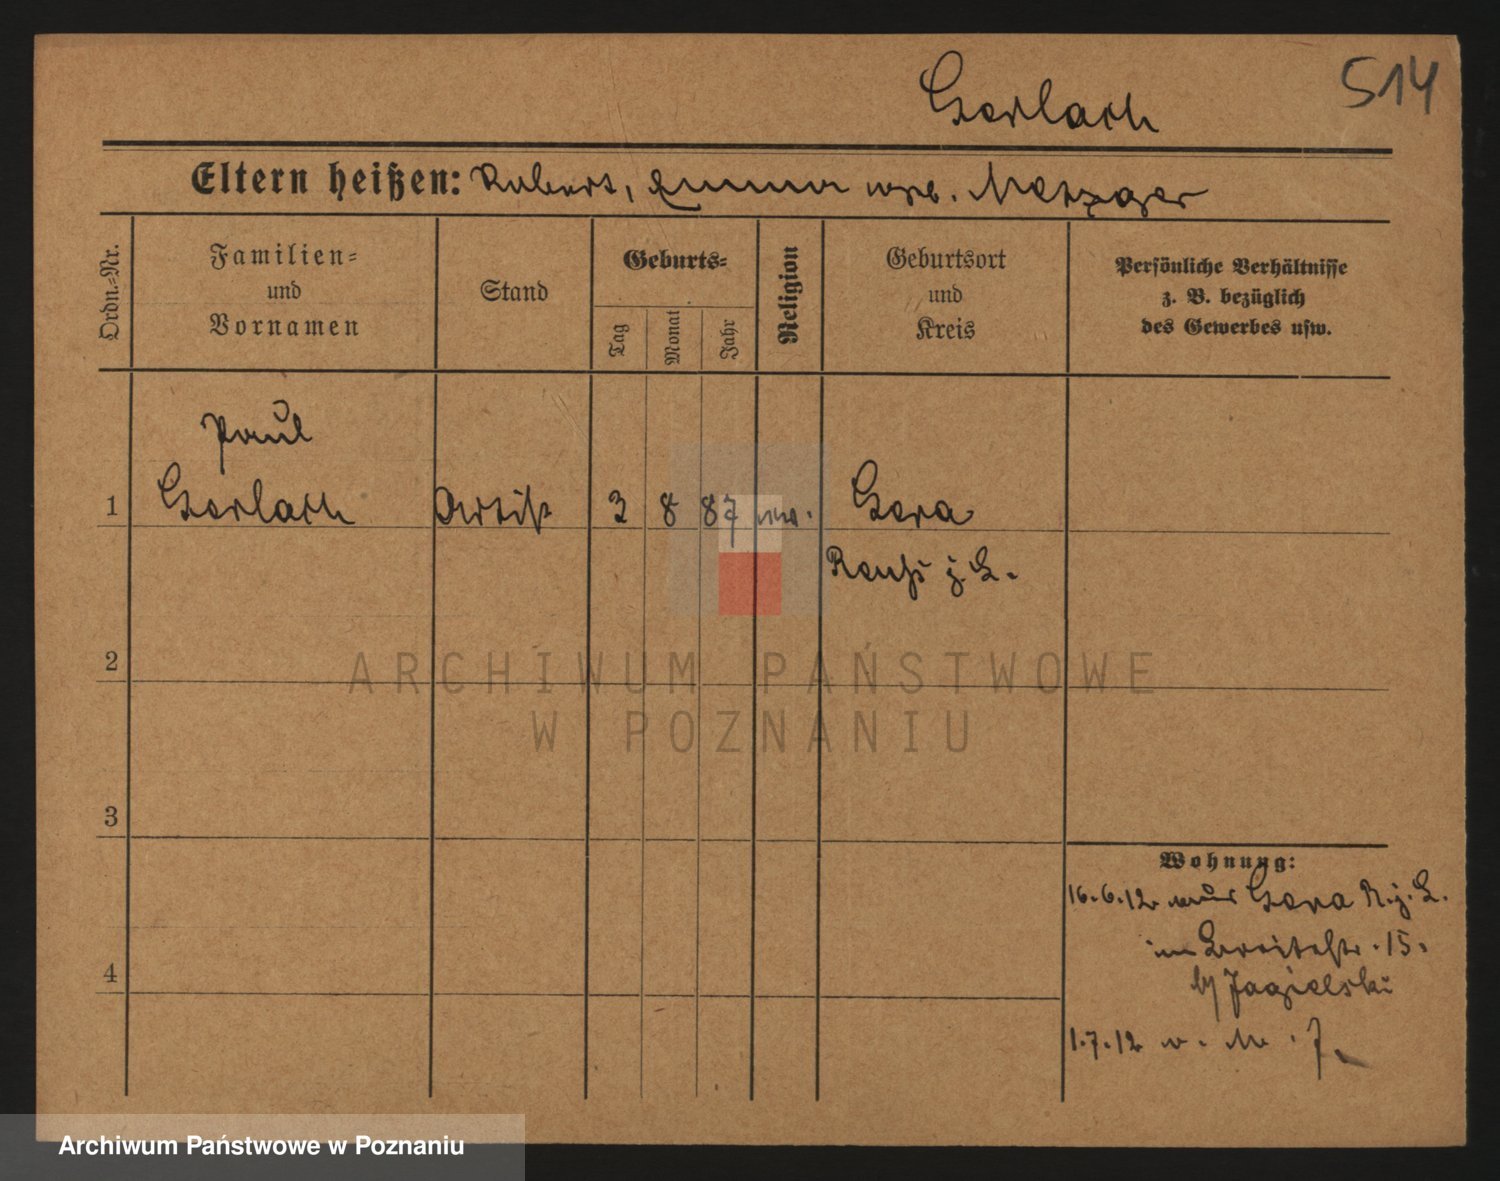 Gerlach
514
Eltern heißen: Robert, Emma geb. Metzger
Ordn.=Nr.
Familien=
und
Vornamen
Stand
Geburts=
Tag
Monat
Jahr
Religion
Geburtsort
und
Kreis
Persönliche Verhältnisse
z. B. bezüglich
des Gewerbes usw.
Paul
1 Gerlach Artist 3 8 87 Gera
Reuß j. L.
ARCHIWUM PAŃSTWOWE
W POZNANIU
2
3
4
Wohnung:
16.6.12 Gera R. j. L.
Breitestr. 15.
b/ Jagielski
1.7.12
Archiwum Państwowe w Poznaniu